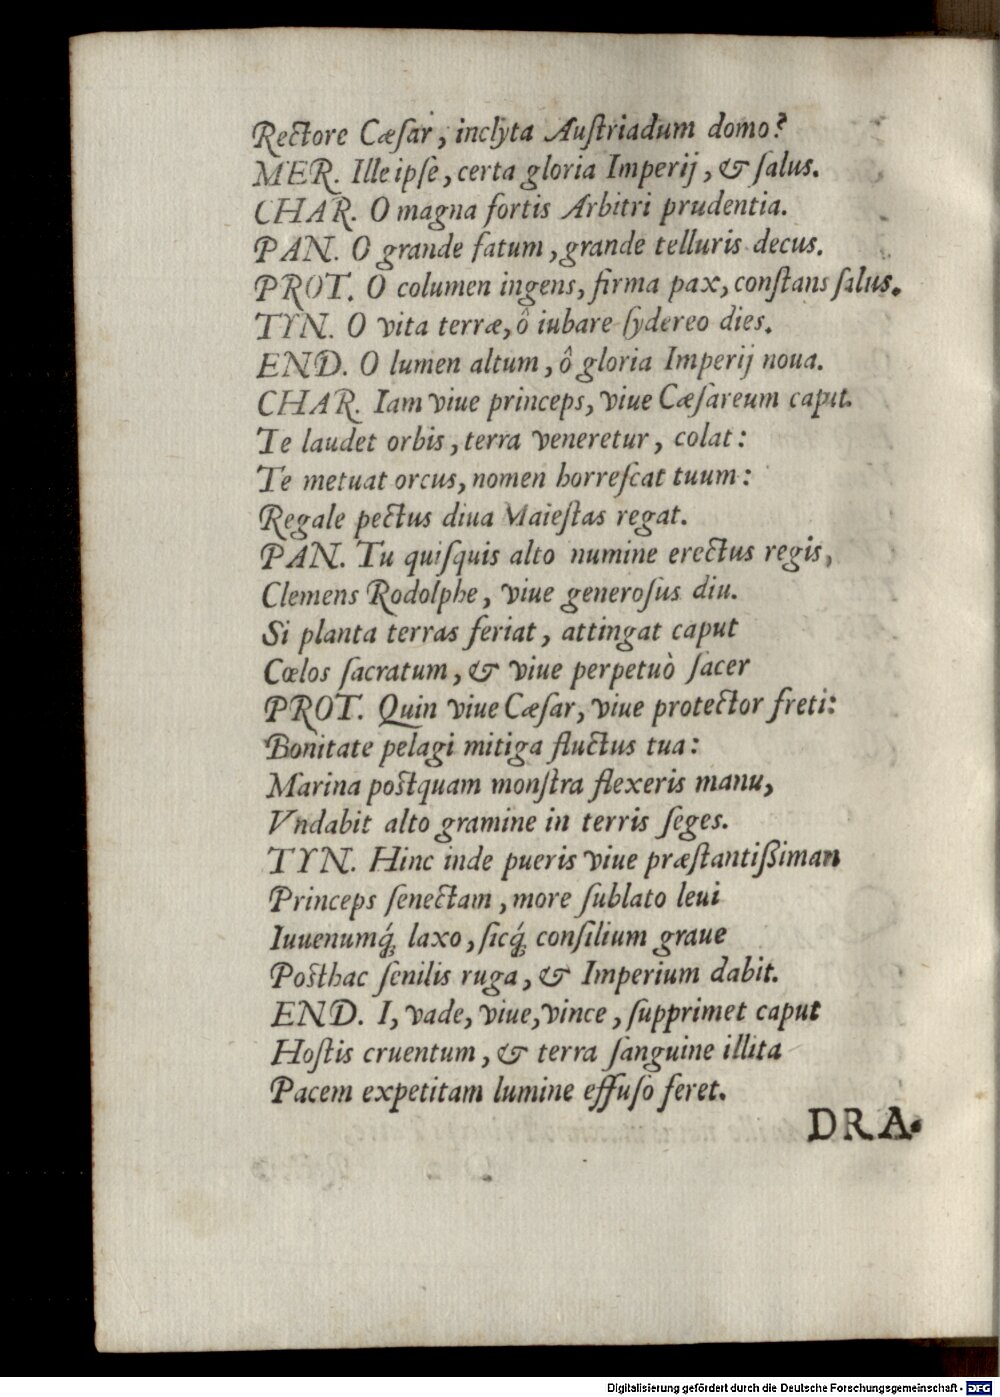 Rectore Cæſar, inclyta Auſtriadum domo?
MER. Ille ipſe, certa gloria Imperij, & ſalus.
CHAR. O magna fortis Arbitri prudentia.
PAN. O grande fatum, grande telluris decus.
PROT. O columen ingens, firma pax, conſtans ſalus.
TYN. O vita terræ, ô iubare ſydereo dies.
END. O lumen altum, ô gloria Imperij noua.
CHAR. Iam viue princeps, viue Cæſareum caput.
Te laudet orbis, terra veneretur, colat:
Te metuat orcus, nomen horreſcat tuum:
Regale pectus diua Maieſtas regat.
PAN. Tu quiſquis alto numine erectus regis,
Clemens Rodolphe, viue generoſus diu.
Si planta terras feriat, attingat caput
Cœlos ſacratum, & viue perpetuò ſacer
PROT. Quin viue Cæſar, viue protector freti:
Bonitate pelagi mitiga fluctus tua:
Marina poſtquam monſtra flexeris manu,
Vndabit alto gramine in terris ſeges.
TYN. Hinc inde pueris viue præſtantißimam
Princeps ſenectam, more ſublato leui
Iuuenumq́; laxo, ſicq́; conſilium graue
Poſthac ſenilis ruga, & Imperium dabit.
END. I, vade, viue, vince, ſupprimet caput
Hoſtis cruentum, & terra ſanguine illita
Pacem expetitam lumine effuſo feret.
DRA-
Digitalisierung gefördert durch die Deutsche Forschungsgemeinschaft - DFG